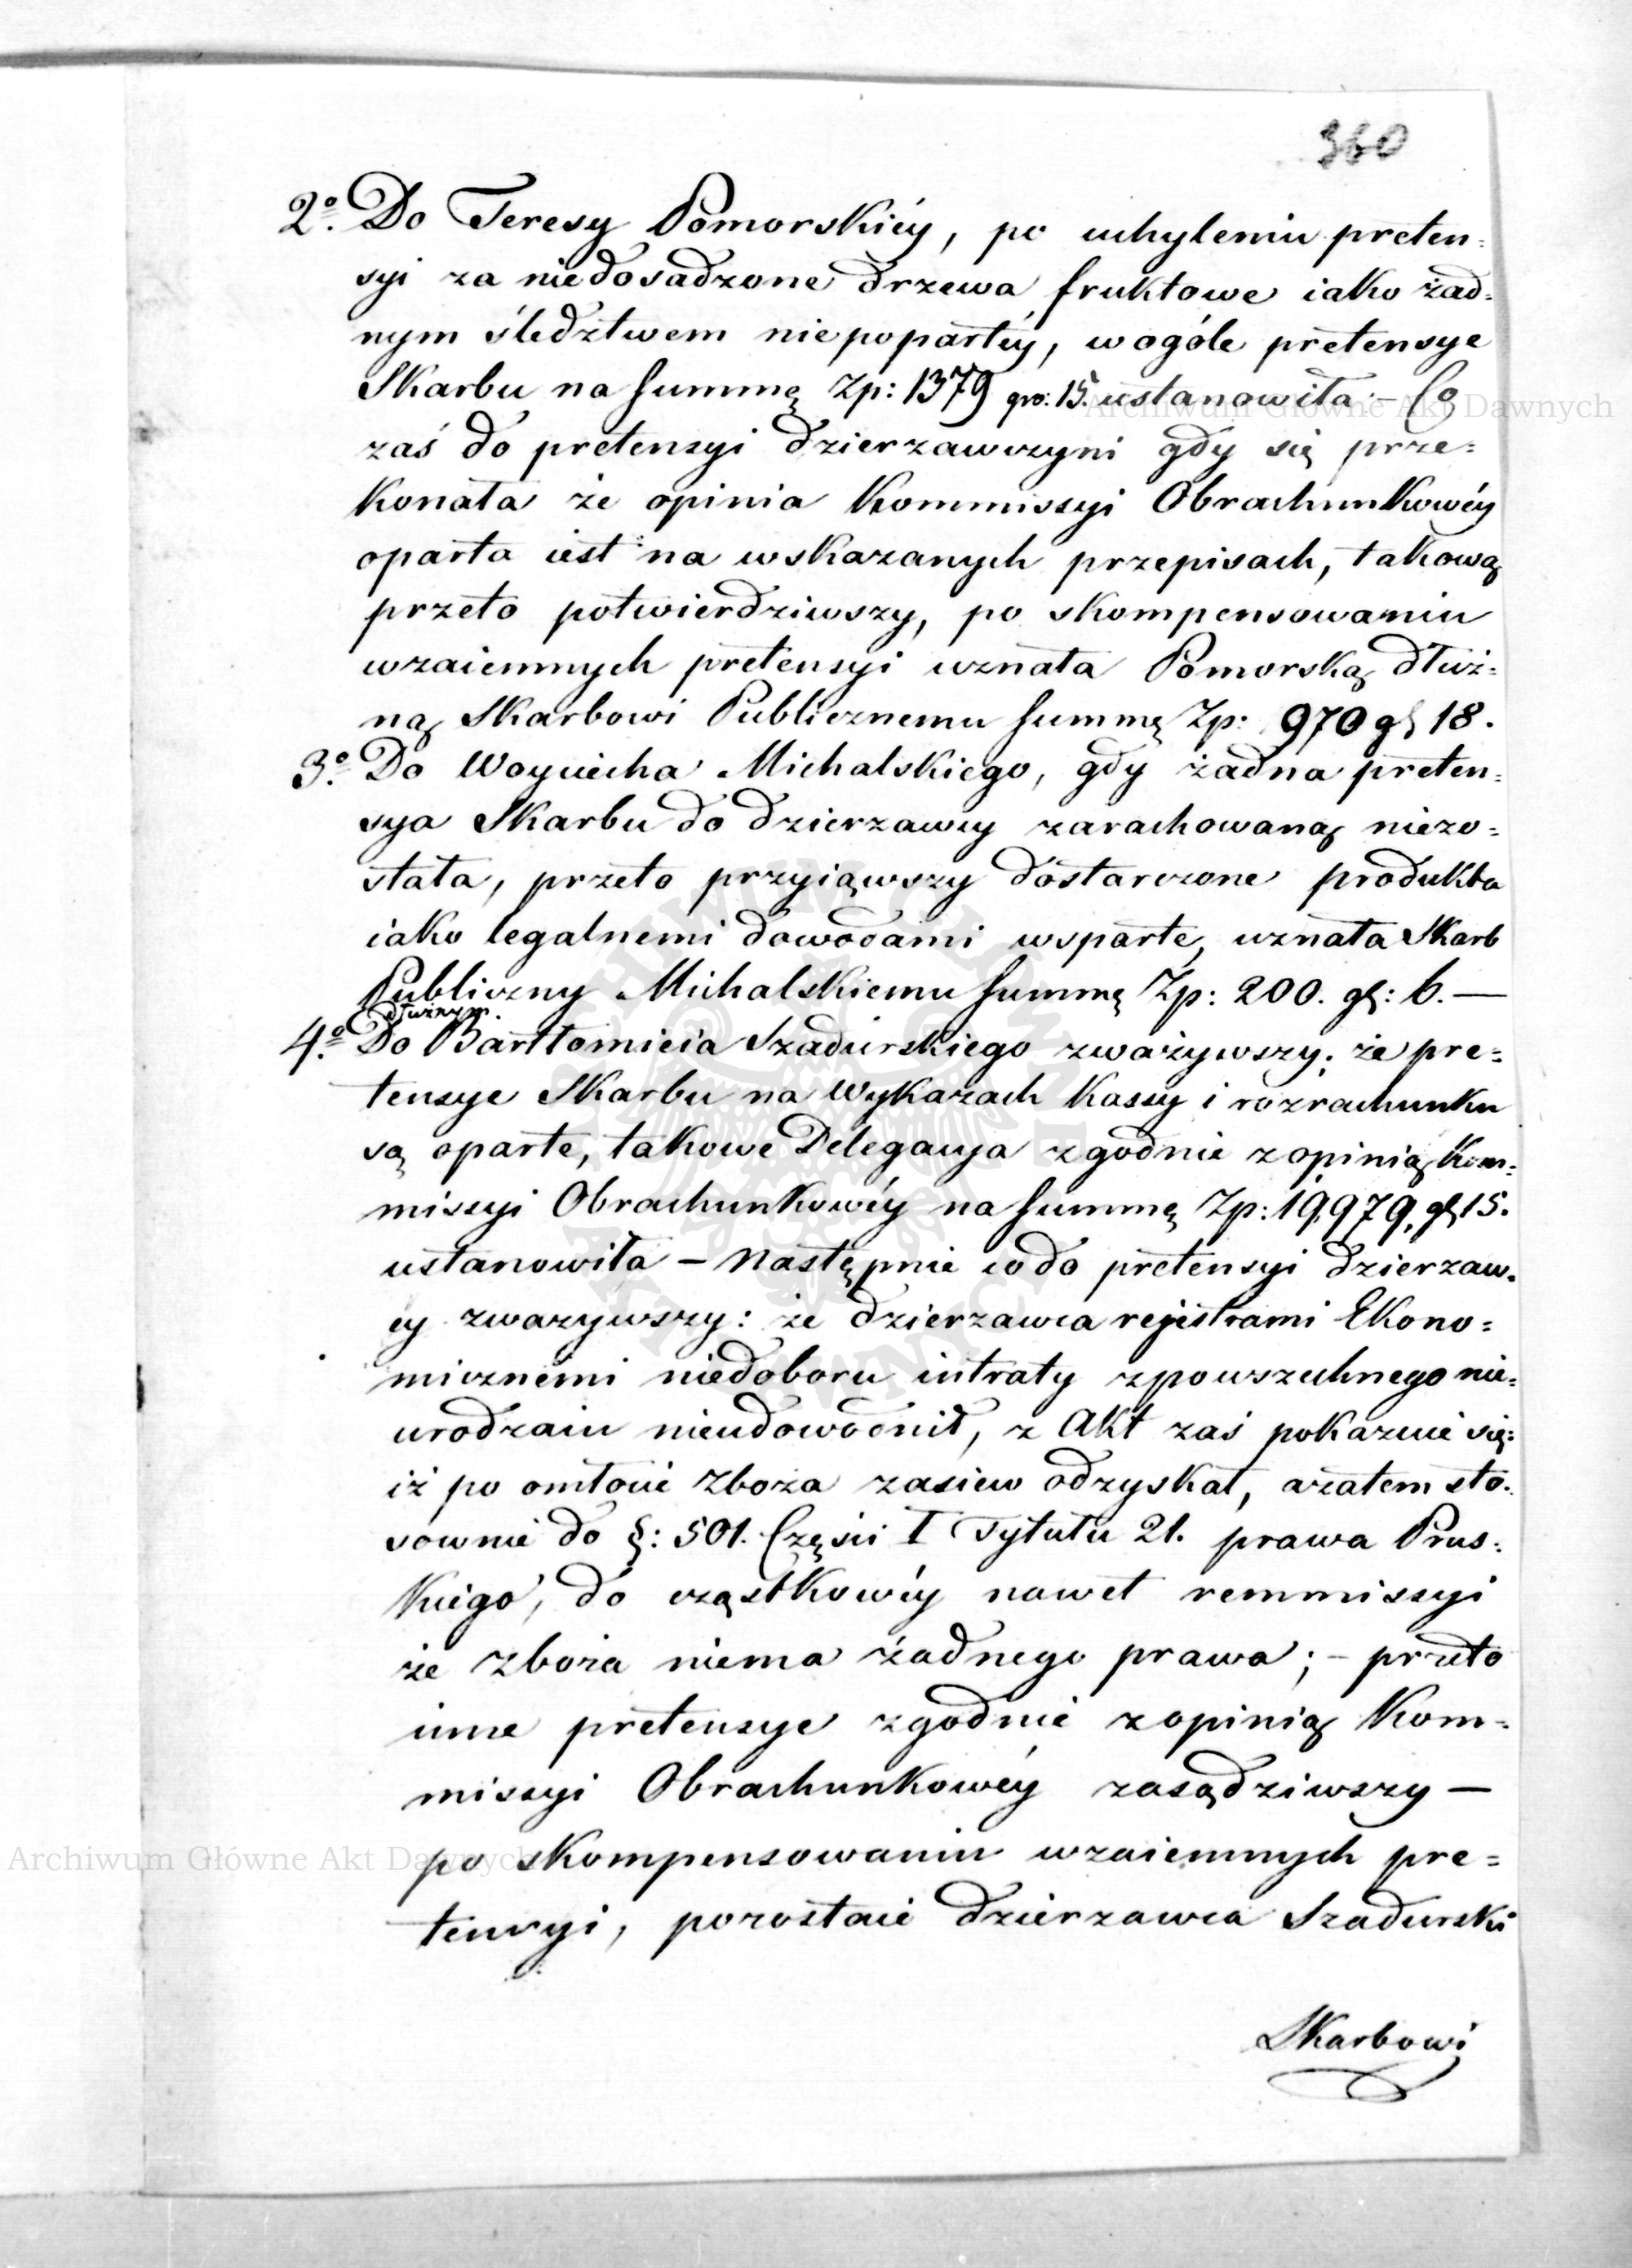 360
2º. Do Teresy Pomorskiéy, po uchyleniu preten=
syi za niedosadzone drzewa fruktowe iako żad=
nym śledztwem niepopartéy, wogóle pretensye
Skarbu na summę Zp: 1379 gro: 15. ustanowiła. – Co
zaś do pretensyi dzierzawczyni gdy się prze=
konała że opinia Kommissyi Obrachunkowéy
oparta iest na wskazanych przepisach, takową
przeto potwierdziwszy, po skompensowaniu
wzaiemnych pretensyi uznała Pomorską dłuż=
ną Skarbowi Publicznemu summę Zp: 970 gł 18.
3º. Do Woyciecha Michalskiego, gdy żadna preten=
sya Skarbu do dzierzawcy zarachowaną niezo=
stała, przeto przyiąwszy dostarczone produkta
iako legalnemi dowodami wsparte, uznała Skarb
Publiczny Michalskiemu summę Zp: 200. gł: 6. —
dłużnym.
4º. Do Bartłomieia Szadurskiego zważywszy: że pre=
tensye Skarbu na Wykazach Kassy i rozrachunku
są oparte, takowe Delegacya zgodnie z opinią Kom=
missyi Obrachunkowéy na summę Zp: 19,979, gł 15.
ustanowiła – Następnie co do pretensyi dzierzaw=
cy zwazywszy: że dzierzawca rejestrami Ekono=
micznemi niedoboru intraty zpowszechnego nie=
urodzaiu nieudowodnił, z Akt zaś pokazuie się:
iż po omłocie zboża zasiew odzyskał, azatem sto=
sownie do §: 501. Części I Tytułu 21. prawa Prus=
kiego, do cząstkowéy nawet remmissyi
ze zboża niema żadnego prawa; – przeto
inne pretensye zgodnie z opinią Kom=
missyi Obrachunkowéy zasądziwszy —
po skompensowaniu wzaiemnych pre=
tensyi, pozostaie dzierzawca Szadurski
Skarbowi
Archiwum Główne Akt Dawnych
Archiwum Główne Akt Dawnych